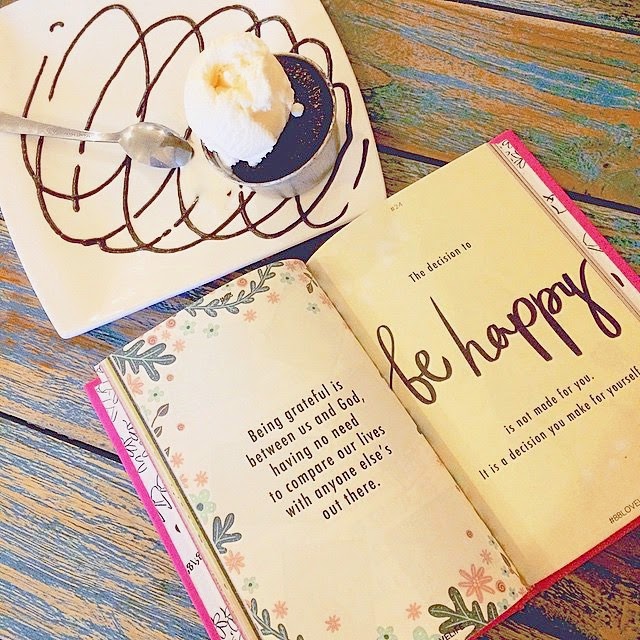 Being grateful is
between us and God,
having no need
to compare our lives
with anyone else's
out there.
#24
The decision to
be happy,
is not made for you.
It is a decision you make for yourself.